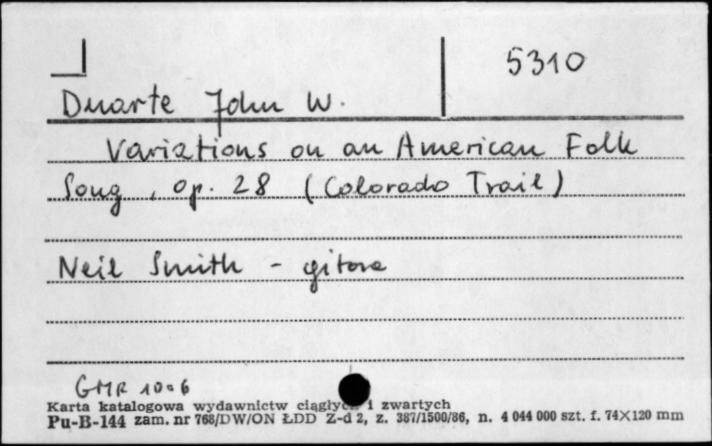 5310
Duarte John W.
Variations on an American Folk
Song, op. 28 (Colorado Trail)
Neil Smith - gitara
GMR 1006
Karta katalogowa wydawnictw ciągłych i zwartych
Pu-B-144 zam. nr 768/DW/ON ŁDD Z-d 2, z. 387/1500/86, n. 4 044 000 szt. f. 74×120 mm